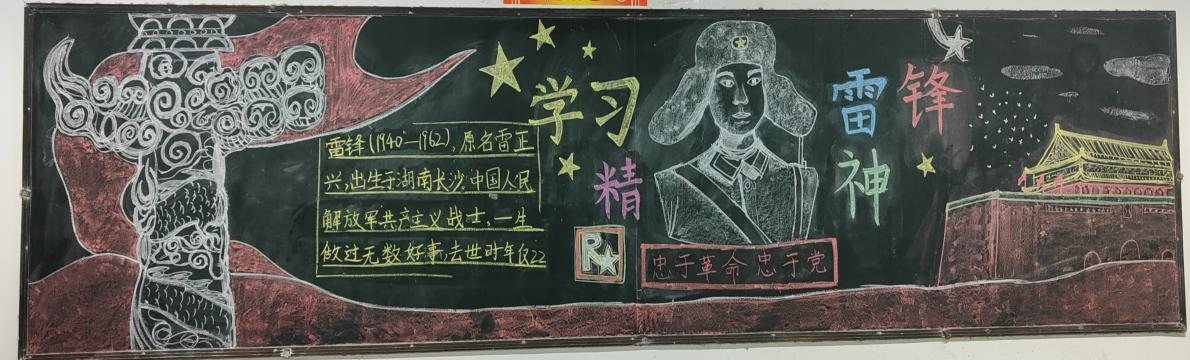 学习雷锋
精神
雷锋(1940—1962),原名雷正
兴,出生于湖南长沙,中国人民
解放军共产主义战士,一生
做过无数好事,去世时年仅22
R
忠于革命 忠于党